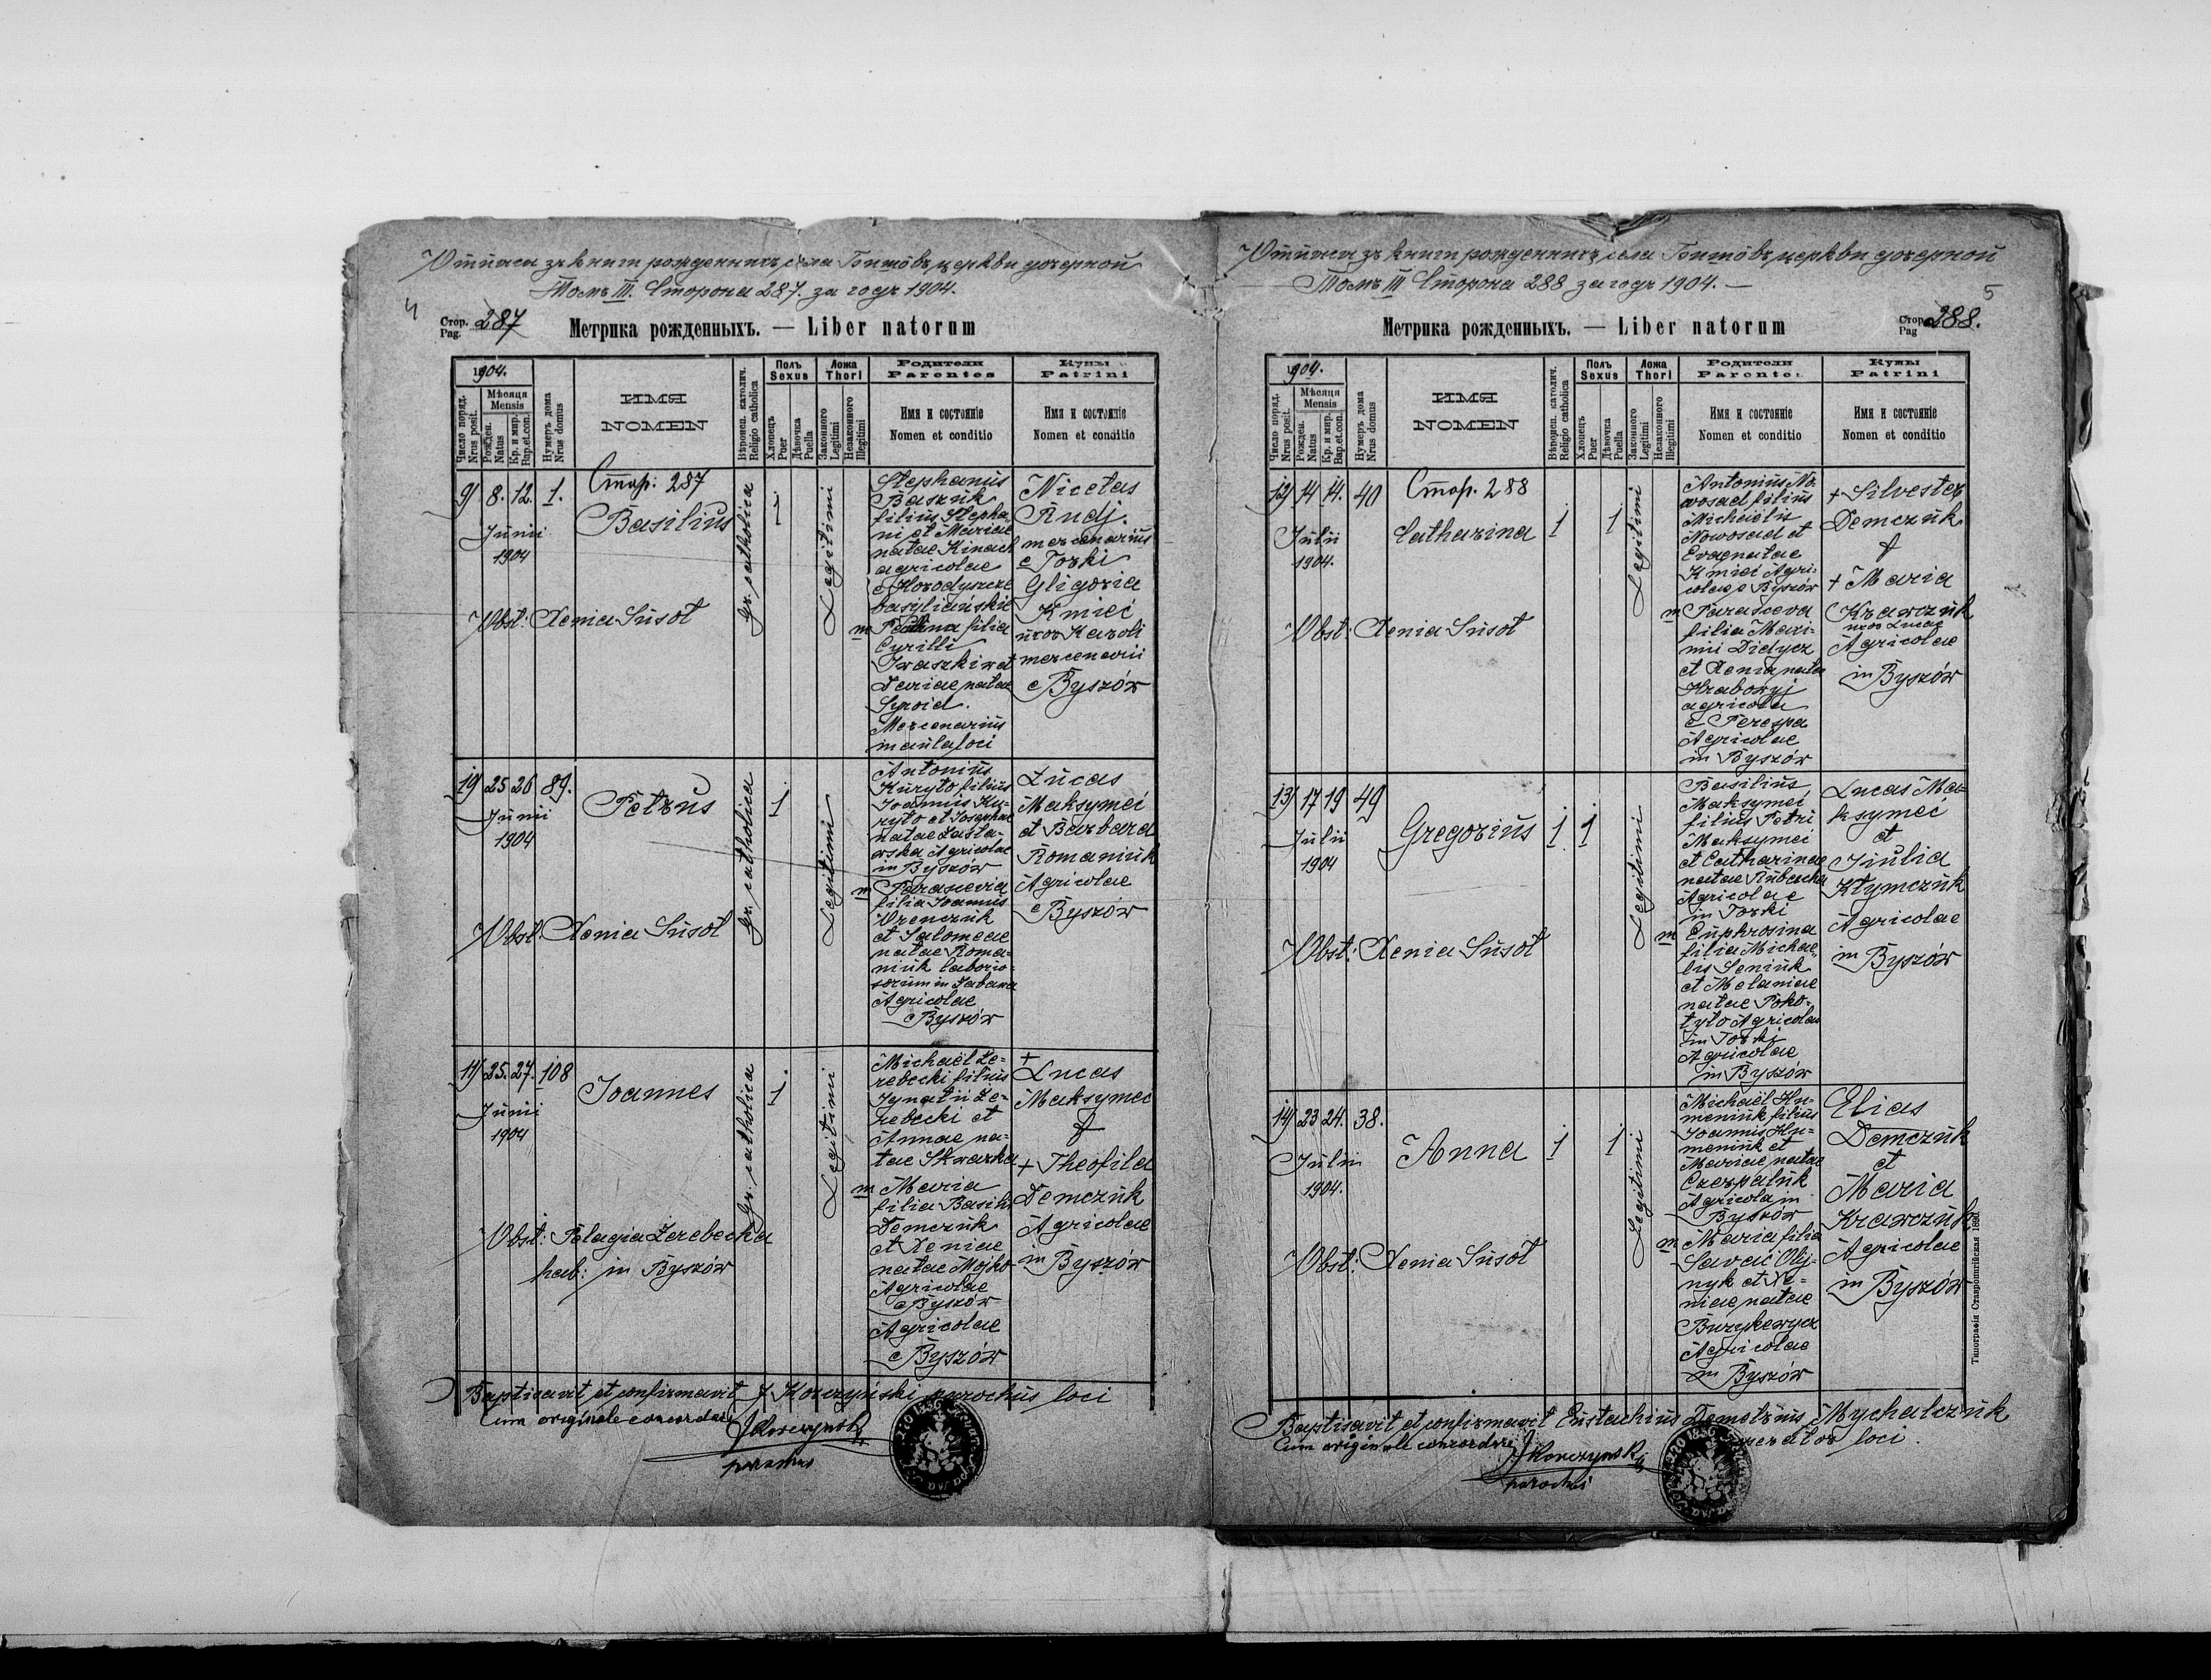 Отписъ зъ книги рожденныхъ села Бишôвъ церкви дочерной
Томъ III. Сторона 287. за годъ 1904.
4
Стор. Pag. 287
Метрика рожденныхъ. — Liber natorum
1904.
Число поряд. Nrus posit.
Мѣсяця Mensis
Рожден. Natus
Кр. и мир. Bap. et con.
Нумеръ дома Nrus domus
ИМЯ
NOMEN
Вѣроисп. католич. Religio catholica
Полъ Sexus
Хлопецъ Puer
Дѣвочка Puella
Ложа Thori
Законного Legitimi
Незаконного Illegitimi
Родители
Parentes
Имя и состояніе
Nomen et conditio
Кумы
Patrini
Имя и состояніе
Nomen et conditio
9) 8. 12. 1.
Junii
1904
Стор. 287
Basilius
Obst: Xenia Susoł
gr. catholica
1
Legitimi
Stephanus
Baszuk
filius Stepha
ni et Mariae
natae Kinach
agricolae
e Horodyszcze
basyliański
m
filia
Cyrilli
Iwaszkiw et
Dariae natae
Syroid.
Mercenarius
in aula loci
Nicetas
Rudj.
mercenarius
e Torki
Gligoria
Kmieć
uxor Karoli
mercenarii
e Byszów
10) 25 26 89.
Junii
1904
Petrus
Obst: Xenia Susoł
gr. catholica
1
Legitimi
Antonius
Kuryło filius
Joannis Ku-
ryło et Josephae
natae Lasta-
wska Agricolae
in Byszów
m Parascevia
filia Joannis
Wrenczuk
et Salomeae
natae Roma-
niuk laborio-
sorum in
Agricolae
e Byszów
Lucas
Maksymeć
et Barbara
Romaniuk
Agricolae
e Byszów
11) 25. 27. 108
Junii
1904
Joannes
Obst: Pelagia Żerebecka
hab: in Byszów
gr. catholica
1
Legitimi
Michael Że-
rebecki filius
Ignatii Że-
rebecki et
Annae na-
tae Skwarka
m Maria
filia Basilii
Demczuk
et Xeniae
natae Mojko
Agricolae
e Byszów
Agricolae
e Byszów
+
Lucas
Maksymeć
&
+ Theofila
Demczuk
Agricolae
in Byszów
Baptisavit et confirmavit J. Korczyński parochus loci
Cum originale concordare JKorczynski
parochus
Отписъ зъ книги рожденныхъ села Бишôвъ церкви дочерной
Томъ III Сторона 288 за годъ 1904. —
5
Стор. Pag 288.
Метрика рожденныхъ. — Liber natorum
1904.
Число поряд. Nrus posit.
Мѣсяця Mensis
Рожден. Natus
Кр. и мир. Bap. et con.
Нумеръ дома Nrus domus
ИМЯ
NOMEN
Вѣроисп. католич. Religio catholica
Полъ Sexus
Хлопецъ Puer
Дѣвочка Puella
Ложа Thori
Законного Legitimi
Незаконного Illegitimi
Родители
Parentes
Имя и состояніе
Nomen et conditio
Кумы
Patrini
Имя и состояніе
Nomen et conditio
12) 14 14. 40
Julii
1904.
Стор. 288
Catharina
Obst: Xenia Susoł
1
1
Legitimi
Antonius No-
wosad filius
Michaelis
Nowosad et
Evae natae
Kmieć Agri-
colae e Byszów
m Parasceva
filia Maxi-
mi Didycz
et Xenia natae
Hrabowyj
agricola
e Perespa
Agricolae
in Byszów
+ Silvester
Demczuk
&
+ Maria
Krawczuk
uxor Lucae
Agricolae
in Byszów
13) 17 19 49
Julii
1904
Gregorius
Obst: Xenia Susoł
1
1
Legitimi
Basilius
Maksymeć
filius Petri
Maksymeć
et Catharinae
natae Rubecha
Agricolae
in Torki
m Euphrosina
filia Michae-
lis Seniuk
et Melaniae
natae Poko-
tyło Agricolae
in Torki
Agricolae
in Byszów
Lucas Ma-
ksymeć
et
Julia
Kłymczuk
Agricolae
in Byszów
14) 23 24. 38.
Julii
1904.
Anna
Obst: Xenia Susoł
1
1
Legitimi
Michael Hu-
meniuk filius
Joannis Hu-
meniuk et
Mariae natae
Czerpaluk
Agricola in
Byszów
m Maria filia
Savae Olij-
nyk et Xe-
niae natae
Buzykewycz
Agricolae
in Byszów
Elias
Demczuk
et
Maria
Krawczuk
Agricolae
in Byszów
Типографія Ставропигійская
Baptisavit et confirmavit Eustachius Demetrius Mychalczuk
loci
Cum originale concordare JKorczynski
parochus